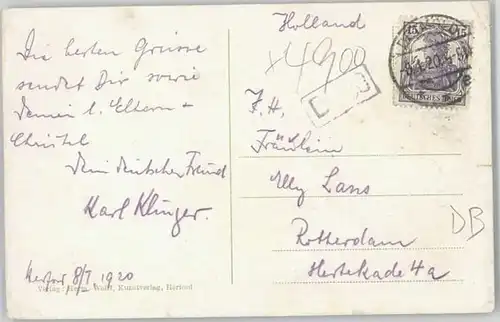 Die besten Grüsse
sendet Dir sowie
Deinen l. Eltern +
Christel
Dein deutscher Freund
Karl Klinger.
Herford 8/I 1920
Verlag: Herm. Wolff, Kunstverlag, Herford
Holland
x4900
F. H.
Fräulein
Elly Lans
Rotterdam
Hertekade 4a
DB
15 15
DEUTSCHES REICH